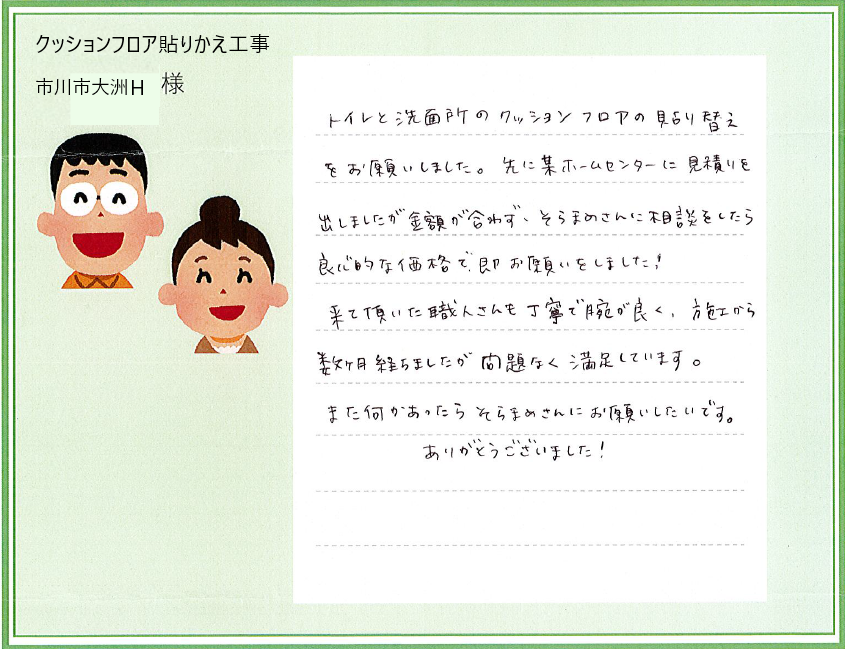 クッションフロア貼りかえ工事
市川市大洲H 様
トイレと洗面所のクッションフロアの貼り替え
をお願いしました。先に某ホームセンターに見積りを
出しましたが金額が合わず、そらまめさんに相談をしたら
良心的な価格で即お願いをしました!
来て頂いた職人さんも丁寧で腕が良く、施工から
数ヶ月経ちましたが問題なく満足しています。
また何かあったらそらまめさんにお願いしたいです。
ありがとうございました!